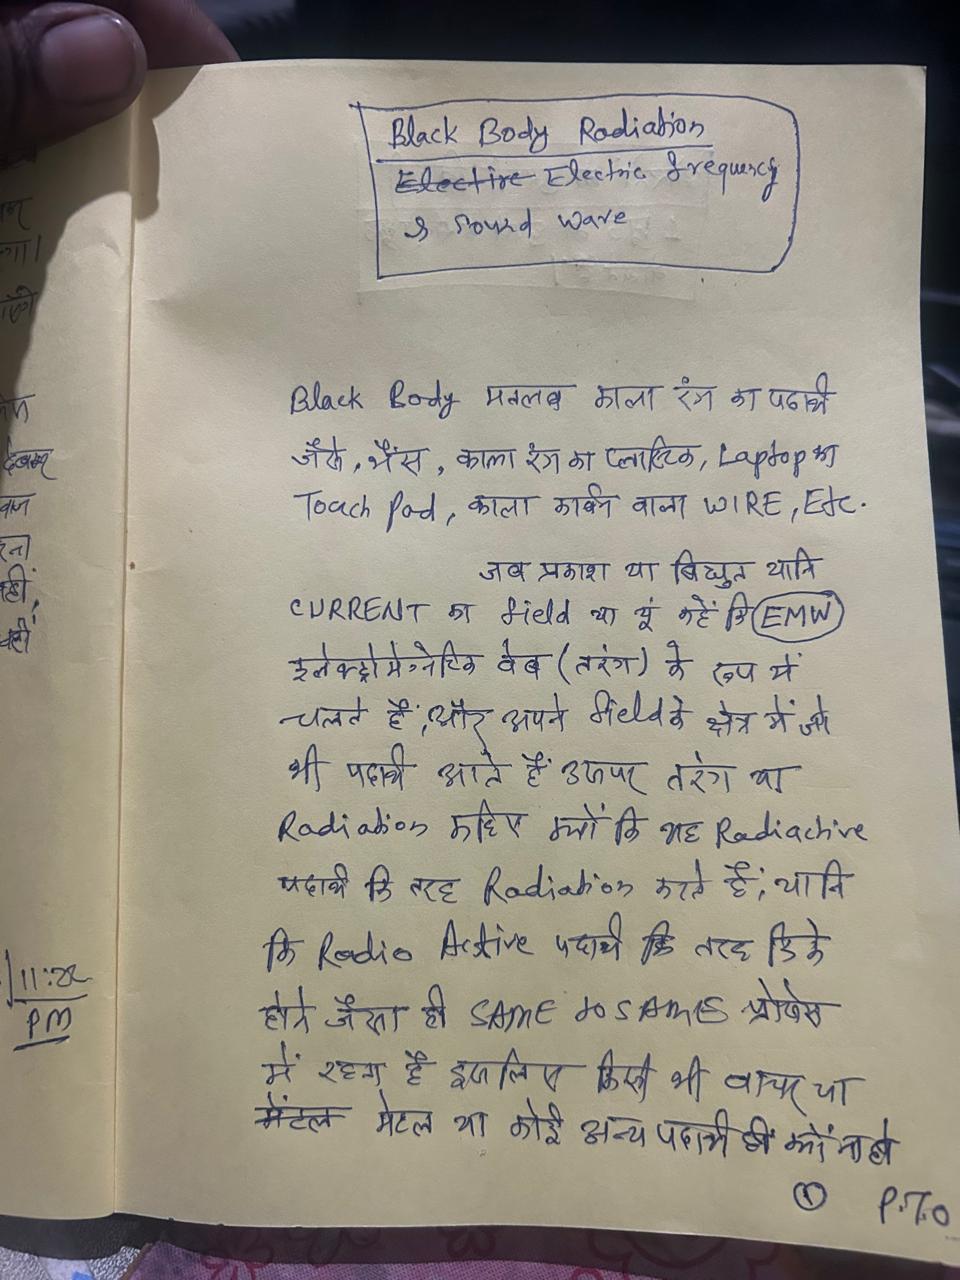 Black Body Radiation
Electric frequency
& sound wave
Black Body मतलब काला रंग का पदार्थ
जैसे, भैंस, काला रंग का प्लास्टिक, Laptop का
Toach Pad, काला कार्बन वाला WIRE, Etc.
जब प्रकाश या बिद्युत यानि
CURRENT का field या यूं कहें कि EMW
इलेक्ट्रोमेग्नेटिक वेब (तरंग) के रूप में
चलते हैं, और अपने field के क्षेत्र में जो
भी पदार्थ आते हैं उसपर तरंग या
Radiation कहिए क्यों कि यह Radiactive
पदार्थ कि तरह Radiation करते हैं, यानि
कि Radio Active पदार्थ कि तरह डिके
होने जैसा ही SAME to SAME प्रोसेस
में रहता है इसलिए किसी भी वायर या
मेंटल मेटल या कोई अन्य पदार्थ हीं क्यों ना हो
① P.T.O
11:22
PM